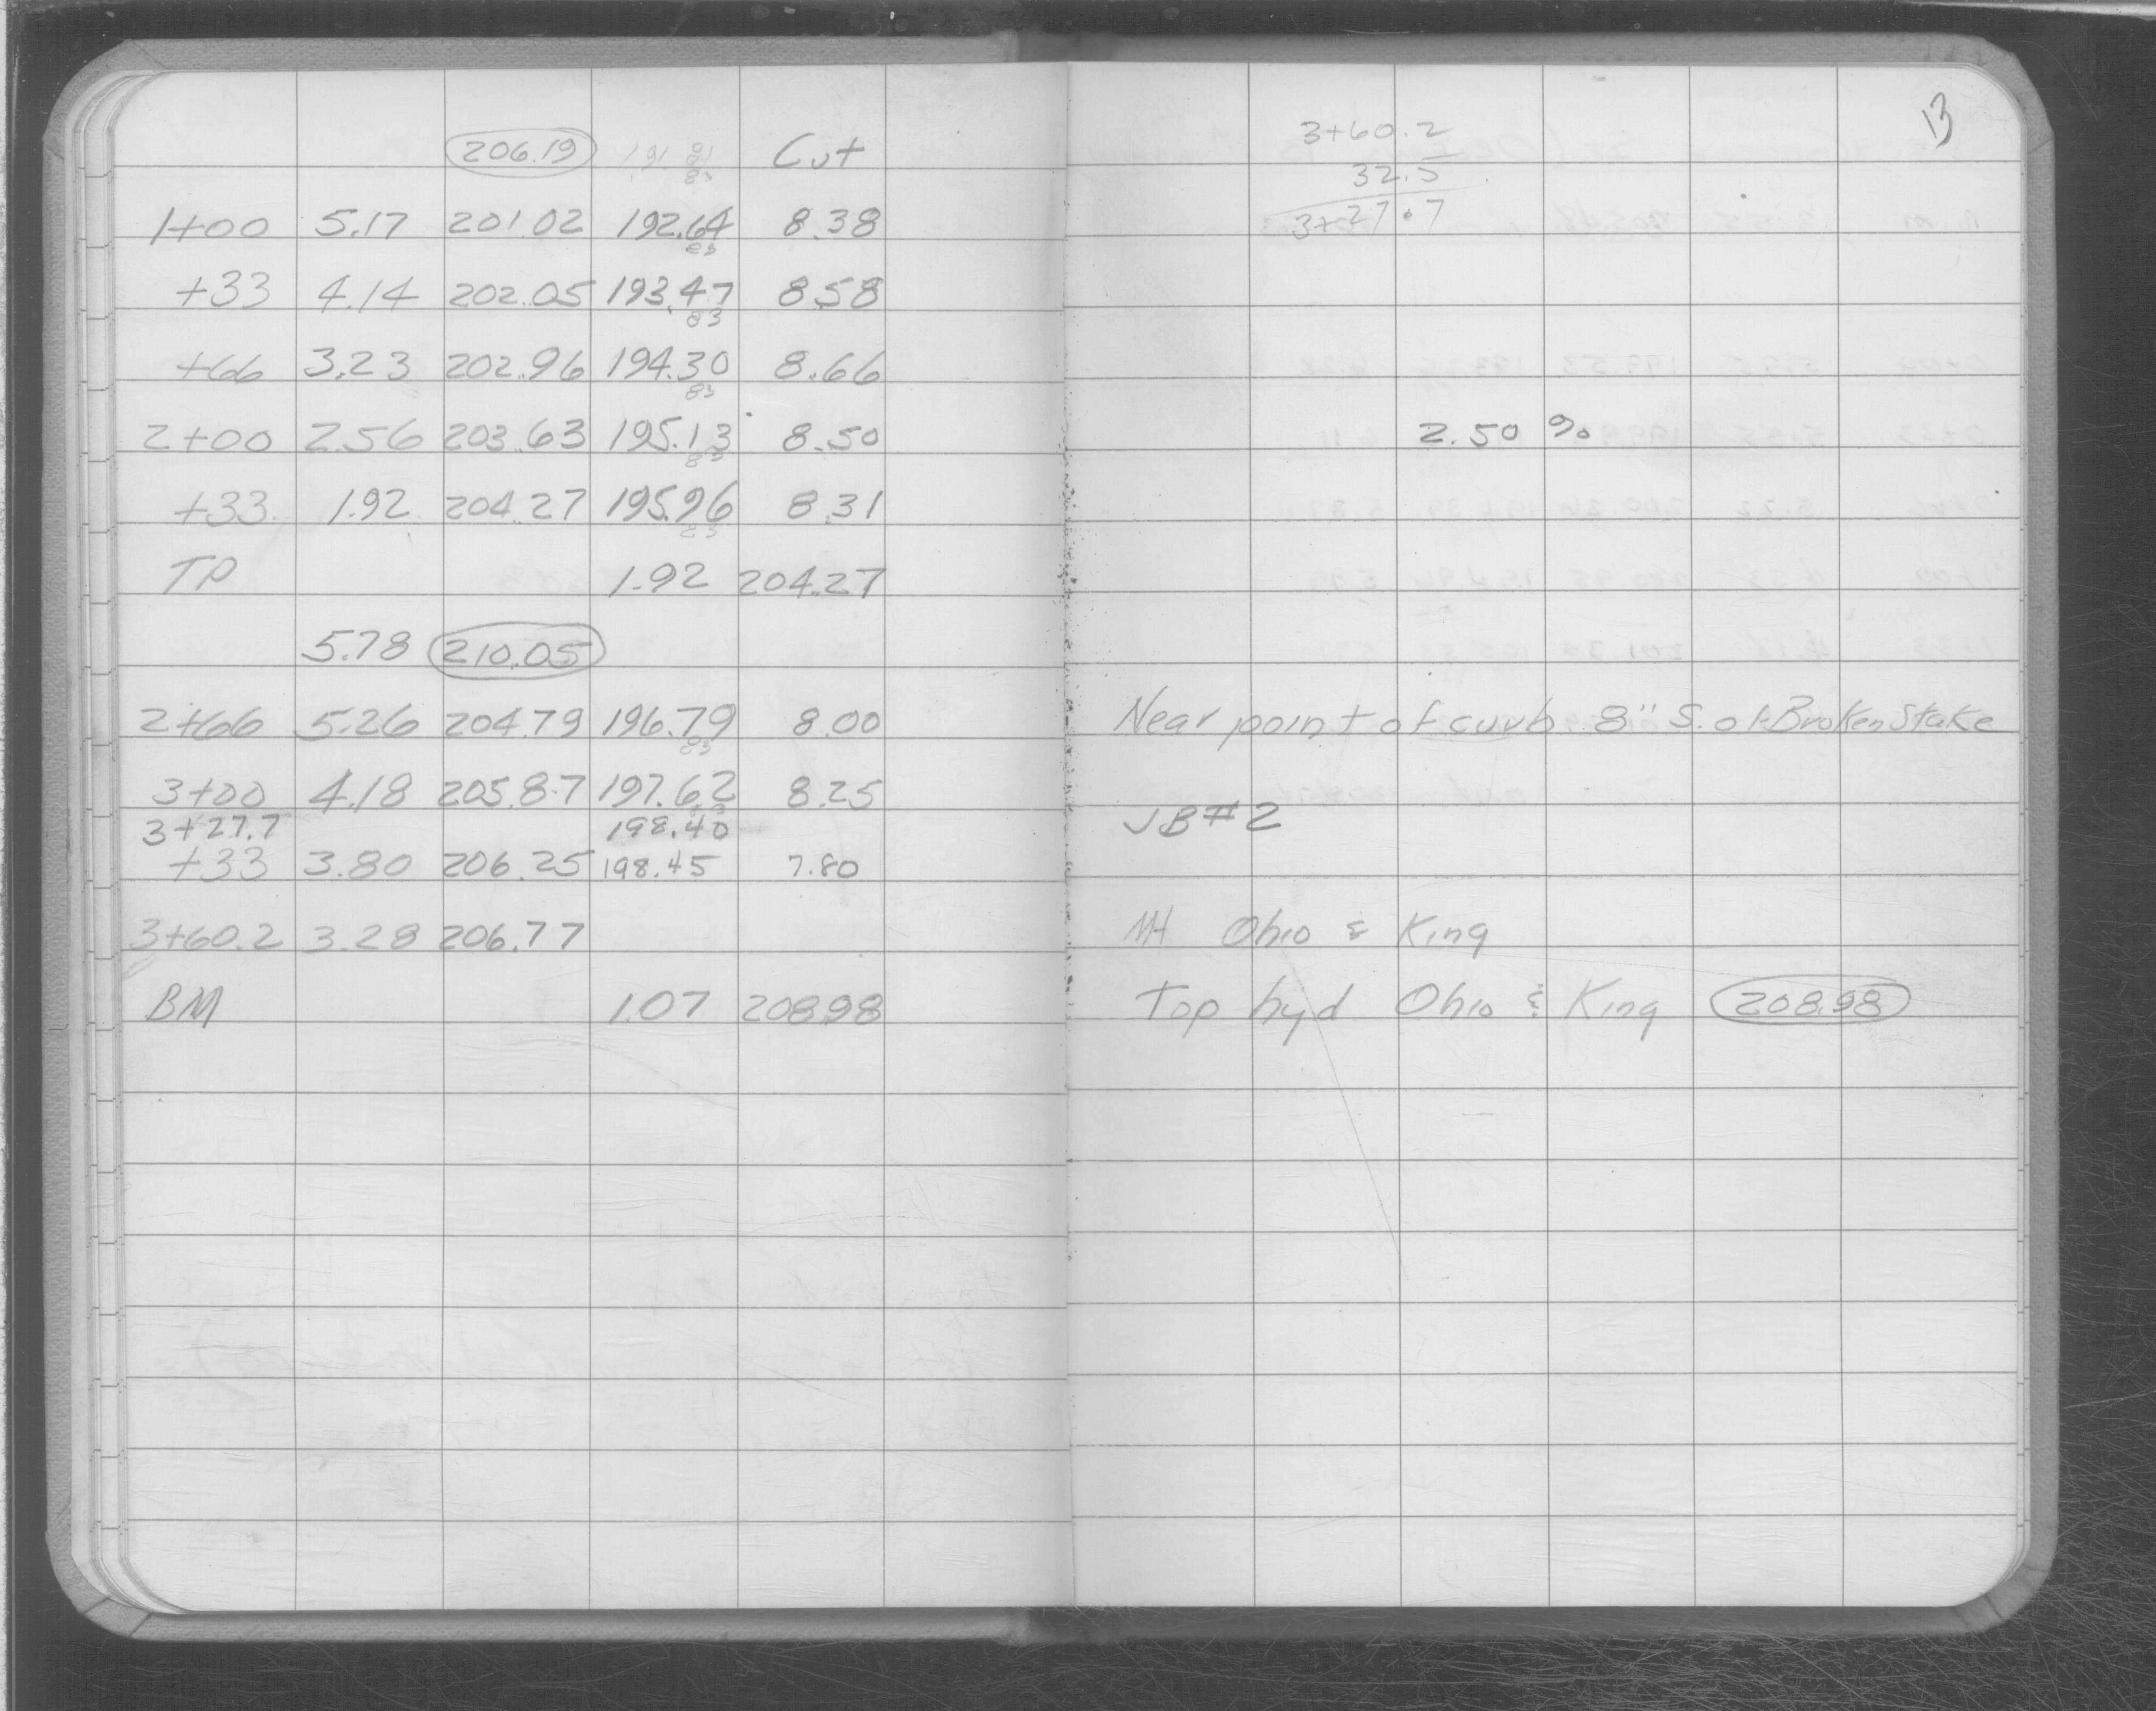 13
206.19 191.81 Cut
83
1+00 5.17 201.02 192.64 8.38
83
+33 4.14 202.05 193.47 8.58
83
+66 3.23 202.96 194.30 8.66
83
2+00 2.56 203.63 195.13 8.50
83
+33 1.92 204.27 195.96 8.31
83
TP 1.92 204.27
5.78 210.05
2+66 5.26 204.79 196.79 8.00
83
3+00 4.18 205.87 197.62 8.25
3+27.7 198.40
+33 3.80 206.25 198.45 7.80
3+60.2 3.28 206.77
BM 1.07 208.98
3+60.2
32.5
3+27.7
2.50 %
Near point of curb 8" S. of Broken Stake
JB #2
MH Ohio & King
Top hyd Ohio & King 208.98